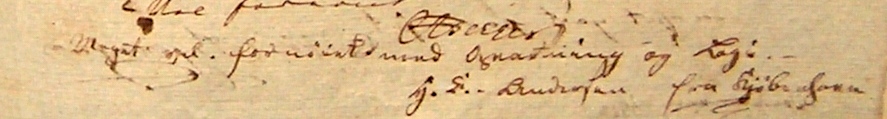 Meget vel fornöiet med Opvartning og Logi. -
H. C. Andersen fra Kjöbenhavn